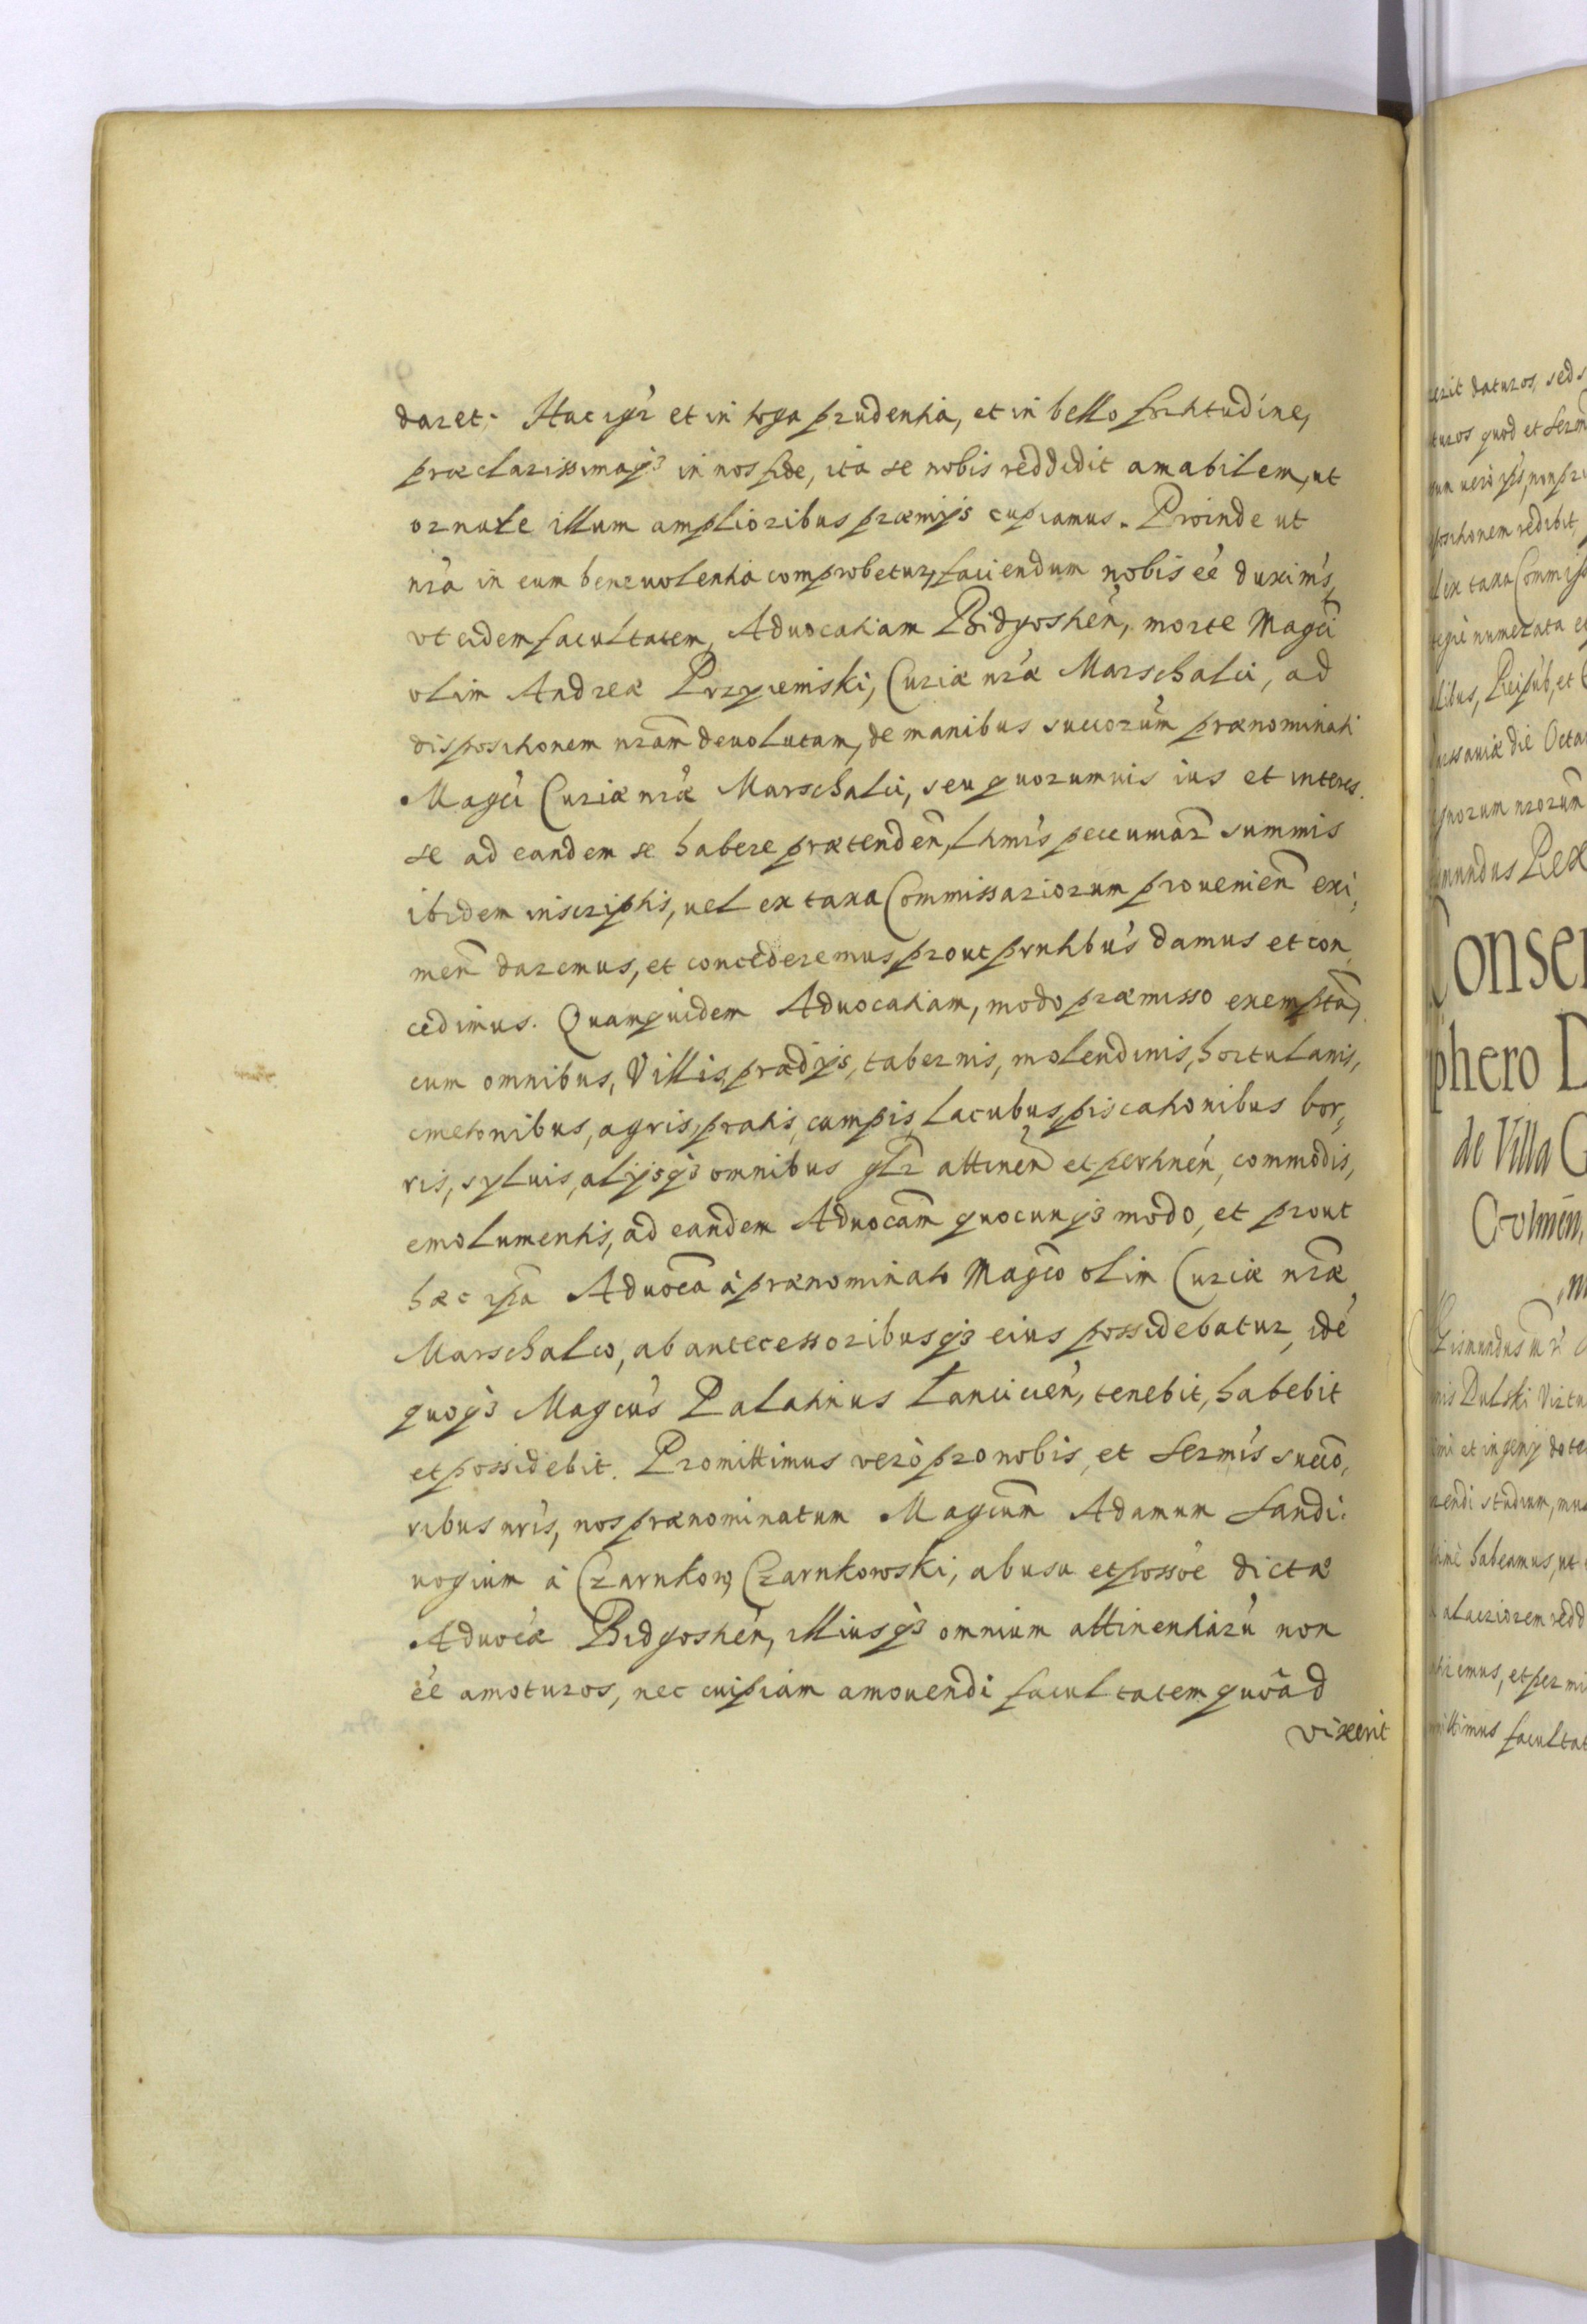 daret. Hac igr̃ et in toga prudentia, et in bello fortitudine,
præclarissimaqȝ in nos fide, ita se nobis reddidit amabilem, ut
ornate illum amplioribus præmijs cupiamus. Proinde ut
nr̃a in eum beneuolentia comprobetur, faciendum nobis eẽ duxim's,
vt eidem facultatem, Aduocatiam Bidgostien̄, morte Magc̃i
olim Andreæ Przyiemski, Curiæ nr̃æ Marschalci, ad
dispositionem nr̃am deuolutam, de manibus succorũm prænominati
Magc̃i Curiæ nr̃æ Marschalci, seu quorumuis ius et interes.
se ad eandem se habere prætenden̄, ltimĩs pecuniar̃ summis
ibidem inscriptis, uel ex taxa Commissariorum prouenien̄ exi,
men̄ daremus, et concederemus prout pr̃ntibus damus et con,
cedimus. Quamquidem Aduocatiam, modo præmisso exemptã,
cum omnibus, Villis, prædijs, tabernis, molendinis, hortulanis,
cmetonibus, agris, pratis, campis, lacubus, piscationibus bor,
ris, syluis, alijsqȝ omnibus gľr attinen̄ et pertinen̄, commodis,
emolumentis, ad eandem Aduocãm quocunqȝ modo, et prout
hæc ipã Aduocã à prænominato Magc̃o olim Curiæ nr̃æ
Marschalco, ab antecessoribusqȝ eius possidebatur, idẽ
quoqȝ Magcũs Palatinus Lancicien̄, tenebit, habebit
et possidebit. Promittimus verò pro nobis, et Sermĩs succõ,
ribus nr̃is, nos prænominatum Magcũm Adamum Sandi:
uogium à Czarnkow Czarnkowski, ab usu et possõe dictæ
Aduocæ̃ Bidgostien̄, illiusqȝ omnium attinentiarũ non
eẽ amoturos, nec cuipiam amouendi facultatem quoãd
vixerit